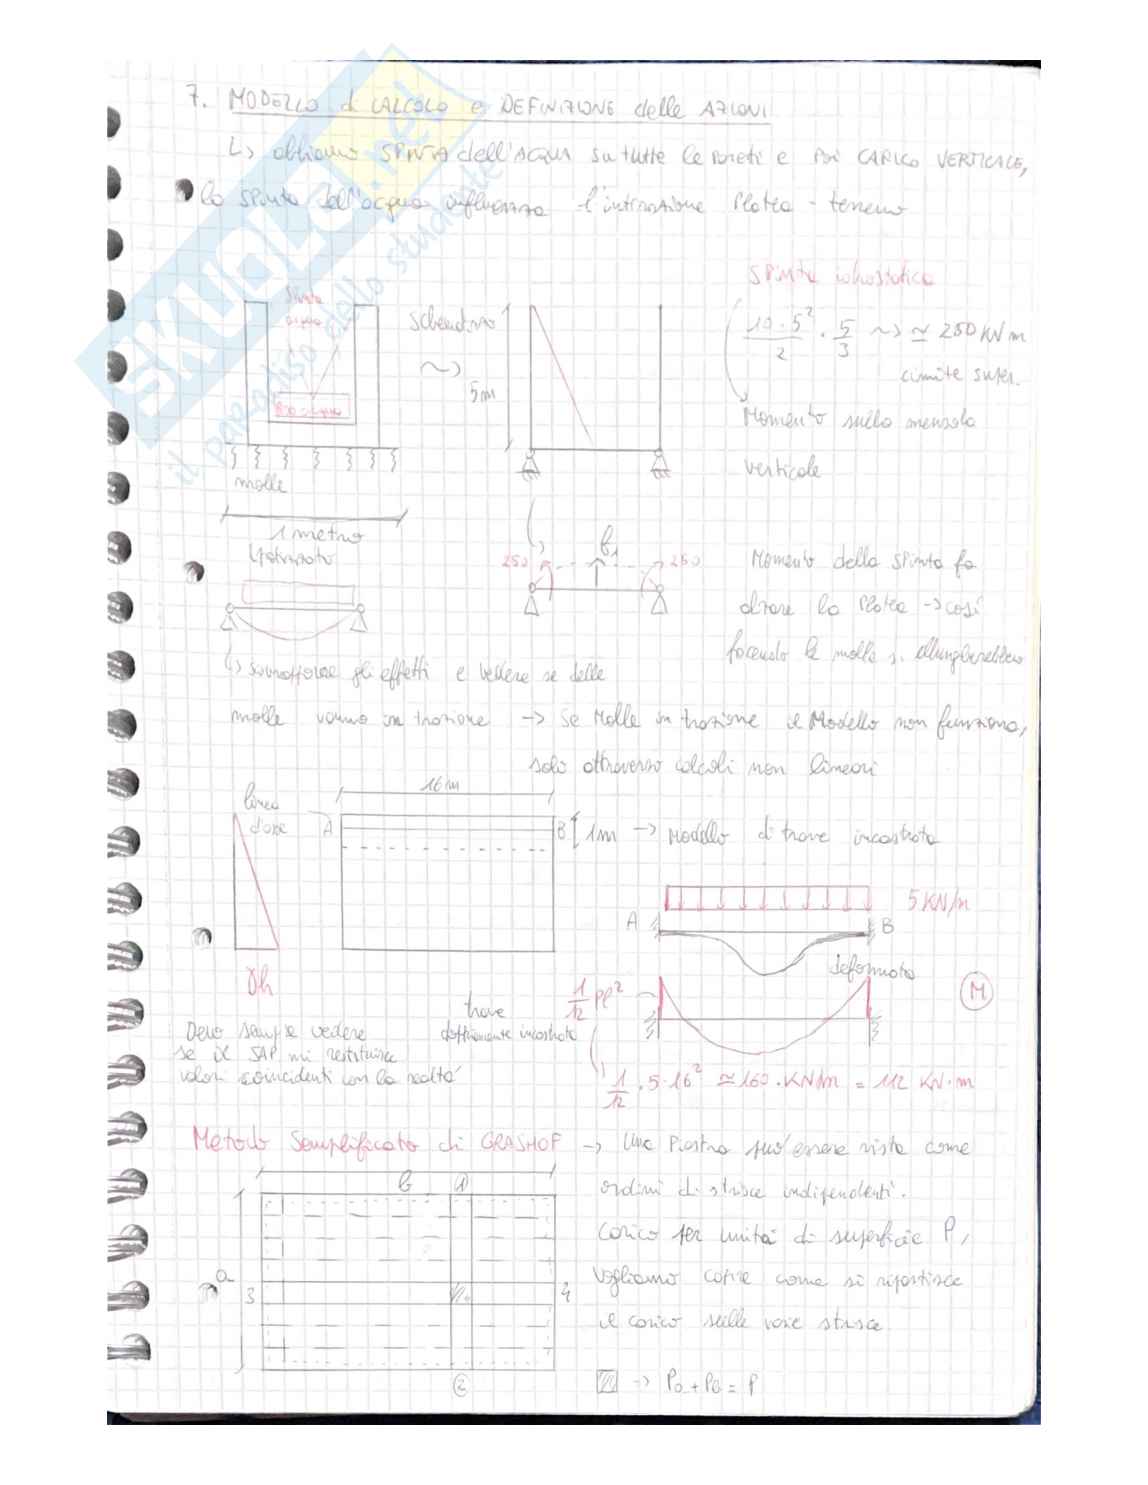 7. MODELLO di CALCOLO e DEFINIZIONE delle AZIONI
↳ abbiamo SPINTA dell'ACQUA su tutte le pareti e poi CARICO VERTICALE,
la spinta dell'acqua influenza l'interazione Platea - terreno
SKUOLA.net
il paradiso dello studente
Spinta idrostatica
Spinta acqua
schematizzo
10 · 5² / 2 · 5/3 ~> ≃ 250 KN m
limite super.
5m
Peso acqua
Momento sulla mensola
verticale
molle
1 metro
250
b1
250
Momento della spinta fa
alzare la Platea -> così
facendo le molle si allungherebbero
↳ sovrapporre gli effetti e vedere se delle
molle vanno in trazione -> Se Molle in trazione il Modello non funziona,
solo attraverso calcoli non lineari
16m
linea
d'asse
A
B
1m -> Modello di trave incastrata
5 KN/m
A
B
deformata
γh
M
1/12 pl²
trave
doppiamente incastrata
Devo sempre vedere
se il SAP mi restituisce
valori coincidenti con la realtà
1/12 · 5 · 16² ≃ 160 · KN/m = 112 KN · m
Metodo Semplificato di GRASHOF -> Una Piastra può essere vista come
b
1
ordini di strisce indipendenti.
carico per unità di superficie P,
a
3
4
Vogliamo capire come si ripartisce
il carico sulle varie strisce.
2
-> Pa + Pb = P